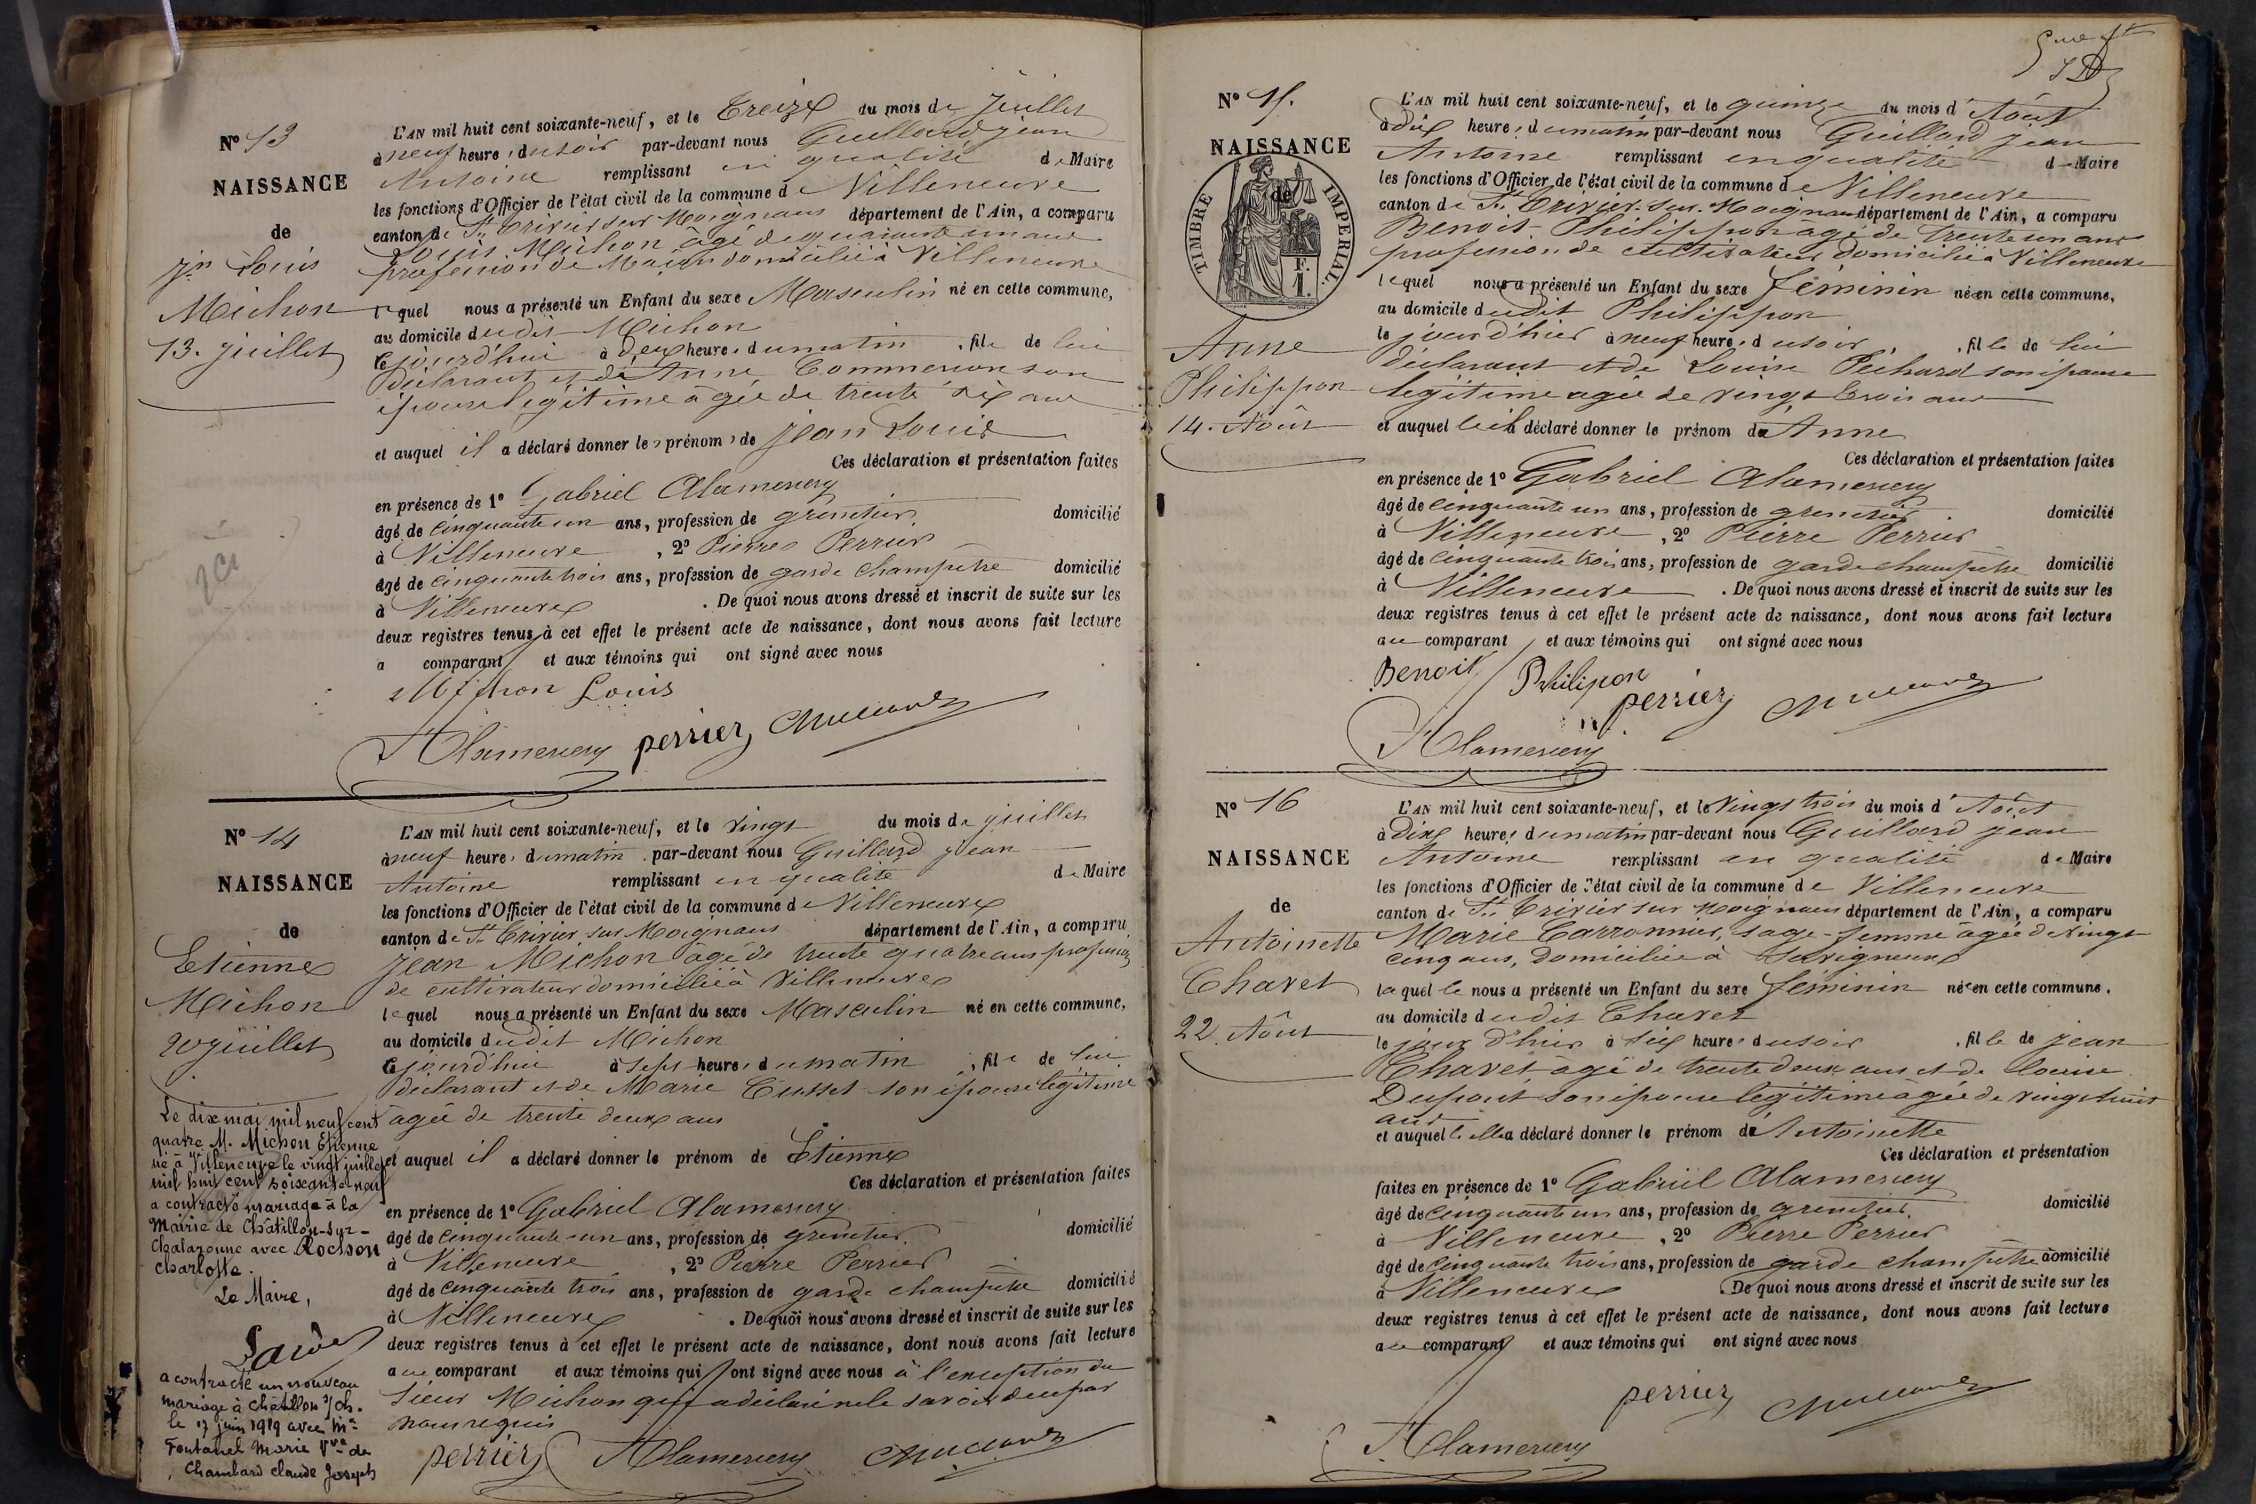 N° 13
NAISSANCE
de
Jn Louis
Michon
13. juillet
L'AN mil huit cent soixante-neuf, et le treize du mois de juillet
à neuf heures du soir par-devant nous Guillard jean
Antoine remplissant en qualité de Maire
les fonctions d'Officier de l'état civil de la commune de Villeneuve
canton de St Trivier sur Moignans département de l'Ain, a comparu
Louis Michon âgé de quarante un ans
profession de Maçon domicilié à Villeneuve
lequel nous a présenté un Enfant du sexe Masculin né en cette commune,
au domicile dudit Michon
cejourd'hui à deux heures du matin, fils de lui
déclarant et de Anne Commerson son
épouse légitime âgée de trente six ans
et auquel il a déclaré donner les prénoms de jean Louis
Ces déclaration et présentation faites
en présence de 1° Gabriel Alamercery
âgé de cinquante un ans, profession de grenetier domicilié
à Villeneuve, 2° Pierre Perrier
âgé de cinquante trois ans, profession de garde champêtre domicilié
à Villeneuve. De quoi nous avons dressé et inscrit de suite sur les
deux registres tenus à cet effet le présent acte de naissance, dont nous avons fait lecture
a comparant et aux témoins qui ont signé avec nous
Michon Louis
Alamercery perrier
N° 14
NAISSANCE
de
Etienne
Michon
20 juillet
L'AN mil huit cent soixante-neuf, et le vingt du mois de juillet
à neuf heures du matin par-devant nous Guillard jean
Antoine remplissant en qualité de Maire
les fonctions d'Officier de l'état civil de la commune de Villeneuve
canton de St Trivier sur Moignans département de l'Ain, a comparu
jean Michon âgé de trente quatre ans profession
de cultivateur domicilié à Villeneuve
lequel nous a présenté un Enfant du sexe Masculin né en cette commune,
au domicile dudit Michon
cejourd'hui à sept heures du matin, fils de lui
déclarant et de Marie Cusset son épouse légitime
âgée de trente deux ans
et auquel il a déclaré donner le prénom de Etienne
Ces déclaration et présentation faites
en présence de 1° Gabriel Alamercery
âgé de cinquante un ans, profession de grenetier domicilié
à Villeneuve, 2° Pierre Perrier
âgé de cinquante trois ans, profession de garde champêtre domicilié
à Villeneuve. De quoi nous avons dressé et inscrit de suite sur les
deux registres tenus à cet effet le présent acte de naissance, dont nous avons fait lecture
au comparant et aux témoins qui ont signé avec nous à l'exception du
sieur Michon qui a déclaré ne le savoir de ce par
nous requis
perrier Alamercery
Le dix mai mil neuf cent
quatre M. Michon Etienne
né à Villeneuve le vingt juillet
mil huit cent soixante-neuf
a contracté mariage à la
Mairie de Chatillon-sur-
Chalaronne avec Rochon
Charlotte.
Le Maire,
a contracté un nouveau
mariage à Châtillon s/Ch.
le 17 juin 1919 avec Me
Fontanel Marie Vve de
Chambard claude Joseph
N° 15.
NAISSANCE
de
TIMBRE IMPERIAL
Anne
Philippon
14. Août
L'AN mil huit cent soixante-neuf, et le quinze du mois d'Août
à dix heures du matin par-devant nous Guillard jean
Antoine remplissant en qualité de Maire
les fonctions d'Officier de l'état civil de la commune de Villeneuve
canton de St Trivier-sur-Moignans département de l'Ain, a comparu
Benoit Philippon agé de trente un ans
profession de cultivateur domicilié à Villeneuve
lequel nous a présenté un Enfant du sexe féminin née en cette commune,
au domicile dudit Philippon
le jour d'hier à neuf heures du soir, fille de lui
déclarant et de Louise Péchard son épouse
légitime agée de vingt trois ans
et auquel le il a déclaré donner le prénom de Anne
Ces déclaration et présentation faites
en présence de 1° Gabriel Alamercery
âgé de cinquante un ans, profession de grenetier domicilié
à Villeneuve, 2° Pierre Perrier
âgé de cinquante trois ans, profession de garde champêtre domicilié
à Villeneuve. De quoi nous avons dressé et inscrit de suite sur les
deux registres tenus à cet effet le présent acte de naissance, dont nous avons fait lecture
au comparant et aux témoins qui ont signé avec nous
Benoit Philipon
perrier
Alamercery
N° 16
NAISSANCE
de
Antoinette
Chavet
22 Août
L'AN mil huit cent soixante-neuf, et le vingt trois du mois d'Août
à dix heures du matin par-devant nous Guillard jean
Antoine remplissant en qualité de Maire
les fonctions d'Officier de l'état civil de la commune de Villeneuve
canton de St Trivier sur Moignans département de l'Ain, a comparu
Marie Carronnier, sage-femme âgée de vingt
cinq ans, domiciliée à Savigneux
laquelle nous a présenté un Enfant du sexe féminin née en cette commune.
au domicile dudit Chavet
le jour d'hier à six heures du soir, fille de jean
Chavet âgé de trente deux ans et de Louise
Dupont son épouse légitime âgée de vingt huit
ans
et auquel le elle a déclaré donner le prénom de Antoinette
Ces déclaration et présentation
faites en présence de 1° Gabriel Alamercery
âgé de cinquante un ans, profession de grenetier domicilié
à Villeneuve, 2° Pierre Perrier
âgé de cinquante trois ans, profession de garde champêtre domicilié
à Villeneuve. De quoi nous avons dressé et inscrit de suite sur les
deux registres tenus à cet effet le présent acte de naissance, dont nous avons fait lecture
au comparant et aux témoins qui ont signé avec nous
perrier
Alamercery